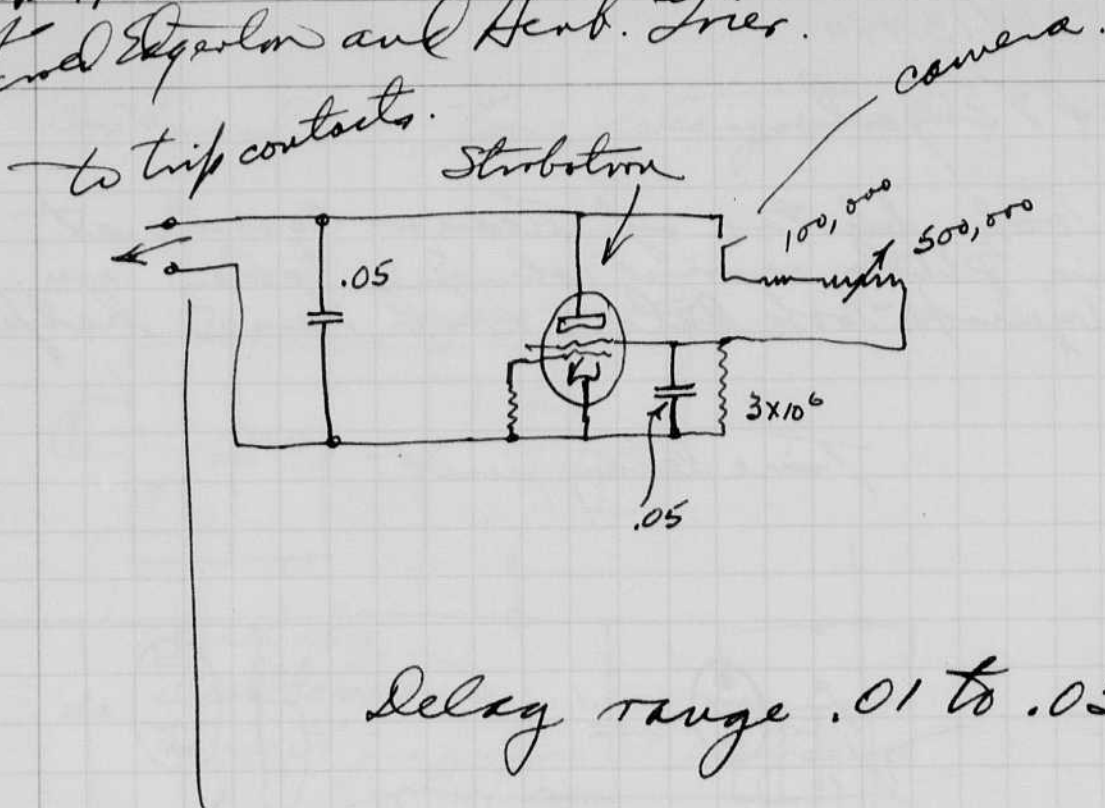 Edgerton and Herb. Grier.
camera.
to trip contacts.
Strobotron
100,000
500,000
.05
3x10⁶
.05
Delay range .01 to .0